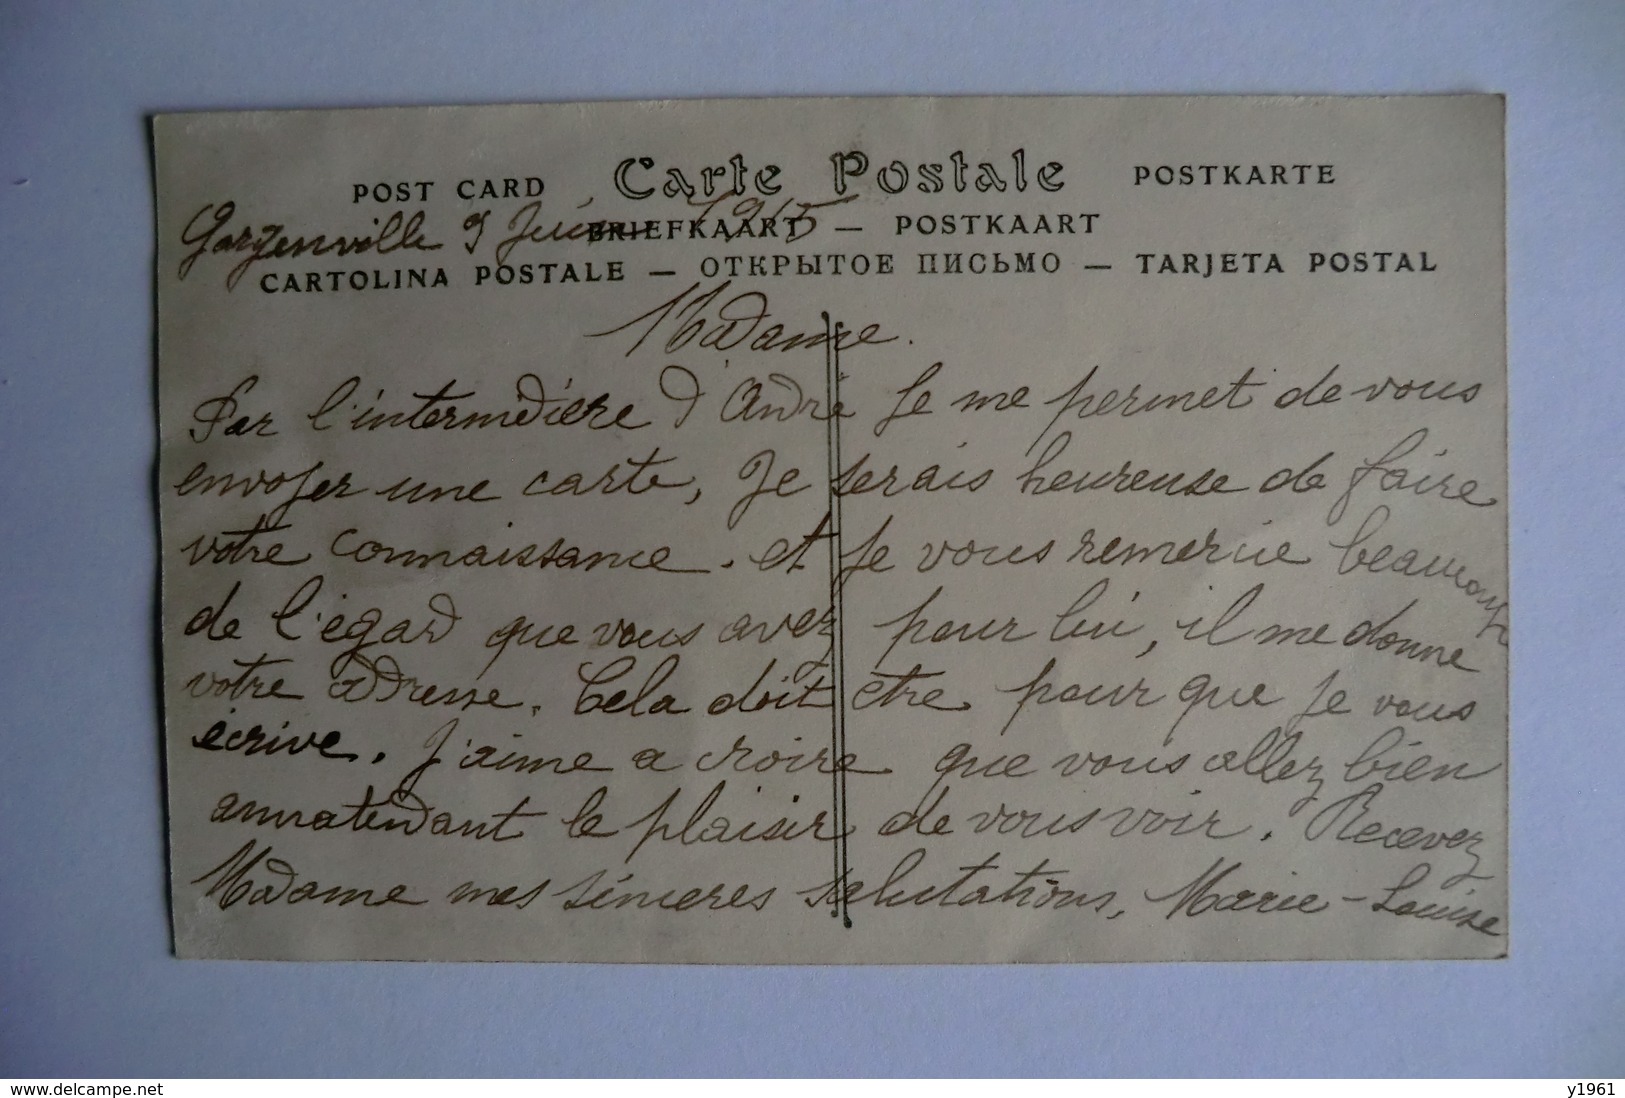 POST CARD Carte Postale POSTKARTE
Gargenville 9 Juin 1915
BRIEFKAART — POSTKAART
CARTOLINA POSTALE — ОТКРЫТОЕ ПИСЬМО — TARJETA POSTAL
Madame.
Par l'intermédière d'André Je me permet de vous
envoyer une carte, Je serais heureuse de faire
votre connaissance. et Je vous remercie beaucoup
de l'égard que vous avez pour lui, il me donne
votre adresse. Cela doit etre pour que Je vous
écrive. J'aime a croire que vous allez bien
annatendant le plaisir de vous voir. Recevez
Madame mes sincères salutations, Marie-Louise
delcampe.net
y1961